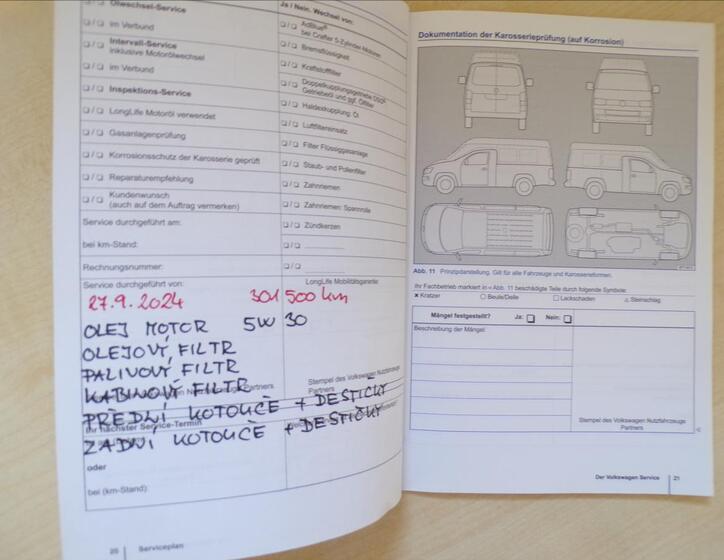 Ölwechsel-Service
❏ / ❏ im Verbund
❏ / ❏ Intervall-Service
inklusive Motorölwechsel
❏ / ❏ im Verbund
❏ / ❏ Inspektions-Service
❏ / ❏ LongLife Motoröl verwendet
❏ / ❏ Gasanlagenprüfung
❏ / ❏ Korrosionsschutz der Karosserie geprüft
❏ / ❏ Reparaturempfehlung
❏ / ❏ Kundenwunsch
(auch auf dem Auftrag vermerken)
Service durchgeführt am:
bei km-Stand:
Rechnungsnummer:
Service durchgeführt von:
Ja / Nein. Wechsel von:
❏ / ❏ AdBlue®
bei Crafter 5-Zylinder Motoren
❏ / ❏ Bremsflüssigkeit
❏ / ❏ Kraftstofffilter
❏ / ❏ Doppelkupplungsgetriebe DSG®
Getriebeöl und ggf. Ölfilter
❏ / ❏ Haldexkupplung: Öl
❏ / ❏ Luftfiltereinsatz
❏ / ❏ Filter Flüssiggasanlage
❏ / ❏ Staub- und Pollenfilter
❏ / ❏ Zahnriemen
❏ / ❏ Zahnriemen: Spannrolle
❏ / ❏ Zündkerzen
❏ / ❏
❏ / ❏
LongLife Mobilitätsgarantie
27.9.2024 301 500 km
OLEJ MOTOR 5W 30
OLEJOVÝ FILTR
PALIVOVÝ FILTR
KABINOVÝ FILTR
Partners
Stempel des Volkswagen Nutzfahrzeuge
Partners
PŘEDNÍ KOTOUČE + DESTIČKY
Ihr nächster Service-Termin
ZADNÍ KOTOUČE + DESTIČKY
oder
bei (km-Stand):
20 Serviceplan
Dokumentation der Karosserieprüfung (auf Korrosion)
Abb. 11 Prinzipdarstellung. Gilt für alle Fahrzeuge und Karosserieformen.
Ihr Fachbetrieb markiert in » Abb. 11 beschädigte Teile durch folgende Symbole:
✖ Kratzer ○ Beule/Delle □ Lackschaden △ Steinschlag
Mängel festgestellt? Ja: ❏ Nein: ❏
Beschreibung der Mängel:
Stempel des Volkswagen Nutzfahrzeuge
Partners
Der Volkswagen Service 21